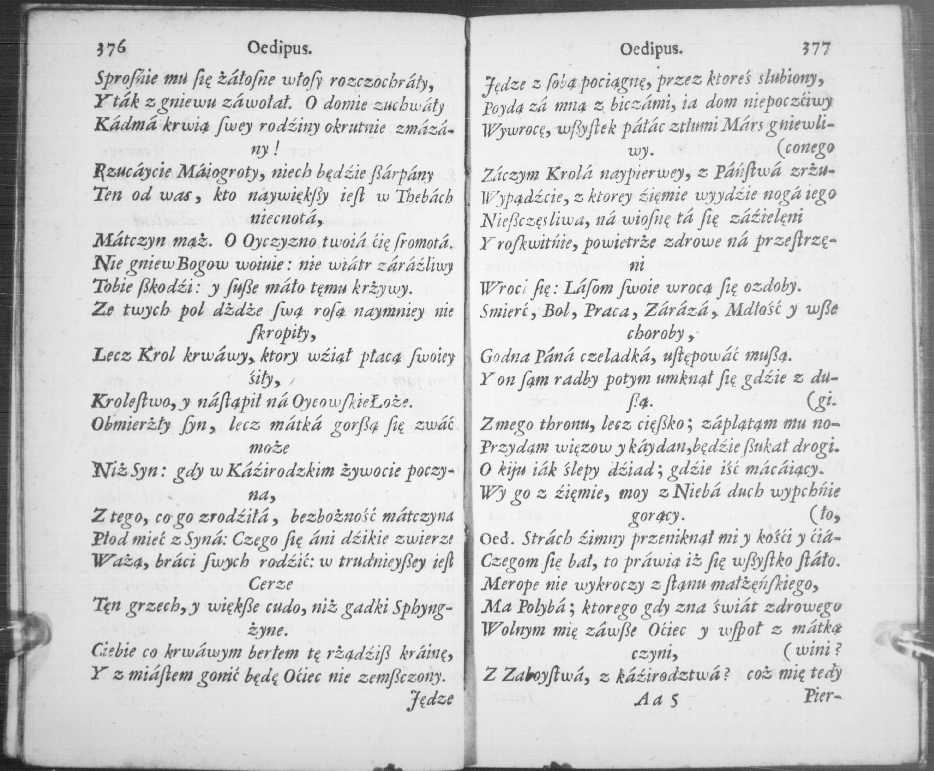 376 Oedipus.
Sprośńie mu ſię żáłoſne włoſy rozczochráły,
Y ták z gniewu záwołał. O domie zuchwáły
Kádmá krwią ſwey rodźiny okrutnie zmázá-
ny!
Rzucáycie Máiogroty, niech będźie ſſárpány
Ten od was, kto naywiękſſy ieſt w Thebách
niecnotá,
Mátczyn mąż. O Oyczyzno twoiá ćię ſromotá.
Nie gniew Bogow woiuie: nie wiátr záráźliwy
Tobie ſſkodźi: y ſuſſe máło tęmu krżywy.
Ze twych pol dżdże ſwą roſą naymniey nie
ſkropiły,
Lecz Krol krwáwy, ktory wźiął płacą ſwoiey
śiły,
Kroleſtwo, y náſtąpił ná Oycowſkie Łoże.
Obmierżły ſyn, lecz mátká gorſſą ſię zwáć
może
Niż Syn: gdy w Káźirodzkim żywocie poczy-
na,
Z tego, co go zrodźiłá, bezbożność mátczyna
Płod mieć z Syná: Czego ſię áni dźikie zwierze
Ważą, bráci ſwych rodźić: w trudnieyſſey ieſt
Cerze
Tęn grzech, y więkſſe cudo, niż gadki Sphyng-
żyne.
Ciebie co krwáwym berłem tę rżądźiſſ kráinę,
Y z miáſtem gonić będę Oćiec nie zemſſczony.
Jędze
Oedipus. 377
Jędze z ſobą pociągnę, przez ktoreś slubiony,
Poydą zá mną z biczámi, ia dom niepoczćiwy
Wywrocę, wſſyſtek páłác ztłumi Márs gniewli-
wy. (conego
Záczym Krolá naypierwey, z Páńſtwá zrżu-
Wypądźcie, z ktorey źięmie wyydzie nogá iego
Nieſſczęsliwa, ná wioſnę tá ſię záźielęni
Y roſkwitńie, powietrże zdrowe ná przeſtrzę-
ni
Wroci ſię: Láſom ſwoie wrocą ſię ozdoby.
Smierć, Bol, Praca, Zárázá, Mdłość y wſſe
choroby,
Godna Páná czeladká, uſtępowáć muſſą.
Y on ſąm radby potym umknął ſię gdźie z du-
ſſą. (gi.
Z mego thronu, lecz cięſſko; záplątąm mu no-
Przydąm więzow y káydan, będźie ſſukał drogi.
O kiju iák ślepy dźiad; gdźie iść mácáiący.
Wy go z źięmie, moy z Niebá duch wypchńie
gorący. (ło,
Oed. Strách źimny przeniknął mi y kośći y ćiá-
Czegom ſię bał, to práwią iż ſię wſſyſtko ſtáło.
Merope nie wykroczy z ſtanu małżęńſkiego,
Ma Polybá; ktorego gdy zna świát zdrowego
Wolnym mię záwſſe Oćiec y wſpoł z mátką
czyni, (wini?
Z Zaboyſtwá, z káźirodztwá? coż mię tedy
Aa 5 Pier-